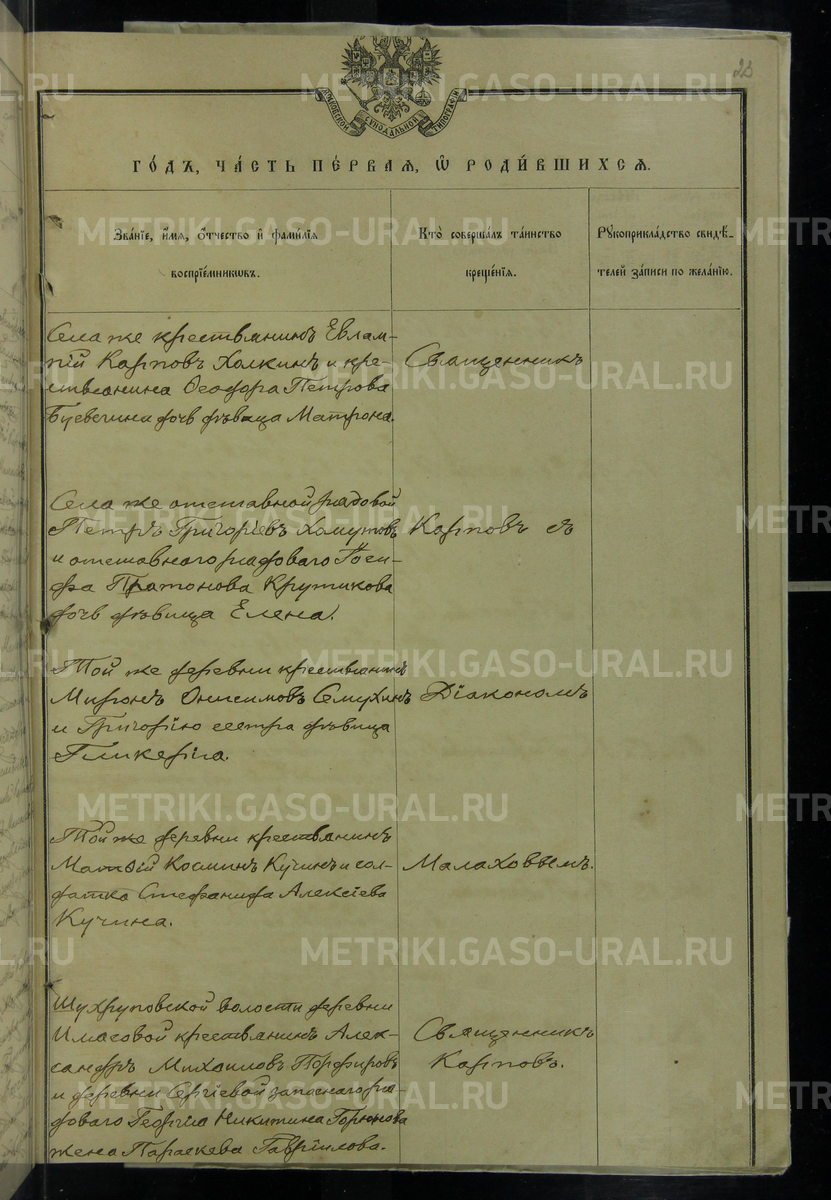 23
МОСКОВСКОЙ СУНОДАЛЬНОЙ ТИПОГРАФІИ
ГО́ДЪ, ЧА́СТЬ ПЕ́РВАѦ, Ѡ҆ РОДИ́ВШИХСѦ.
Зва́нїе, и҆́мѧ, ѻ҆́тчество и҆ фами́лїѧ
воспрїе́мникѡвъ.
Кто̀ соверша́лъ та́инство
креще́нїѧ.
Рꙋкоприкла́дство свидѣ́-
телей за́писи по жела́нїю.
Села же крестьянинъ Евлам-
пій Карповъ Холкинъ и кре-
стьянина Ѳеодора Петрова
дочь дѣвица Матрона.
Священникъ
Села же отставной рядовой
Петръ Григоріевъ Хомутовъ
и отставнаго рядоваго Іоси-
фа Платонова Крутикова
дочь дѣвица Елена.
Карповъ съ
Той же деревни крестьянинъ
Миронъ Онисимовъ Семухинъ
и Григорію сестра дѣвица
Гликерія.
Діакономъ
Той же деревни крестьянинъ
Матѳій Косминъ Кучинъ и сол-
датка Стефанида Алексіева
Кучина.
Малаховымъ.
Шухруповской волости деревни
Имасовой крестьянинъ Алек-
сандръ Михаиловъ Порфировъ
и деревни Сергіевой запаснаго ря-
доваго Георгія Никитина Горюнова
жена Параскева Гавріилова.
Священникъ
Карповъ.
METRIKI.GASO-URAL.RU